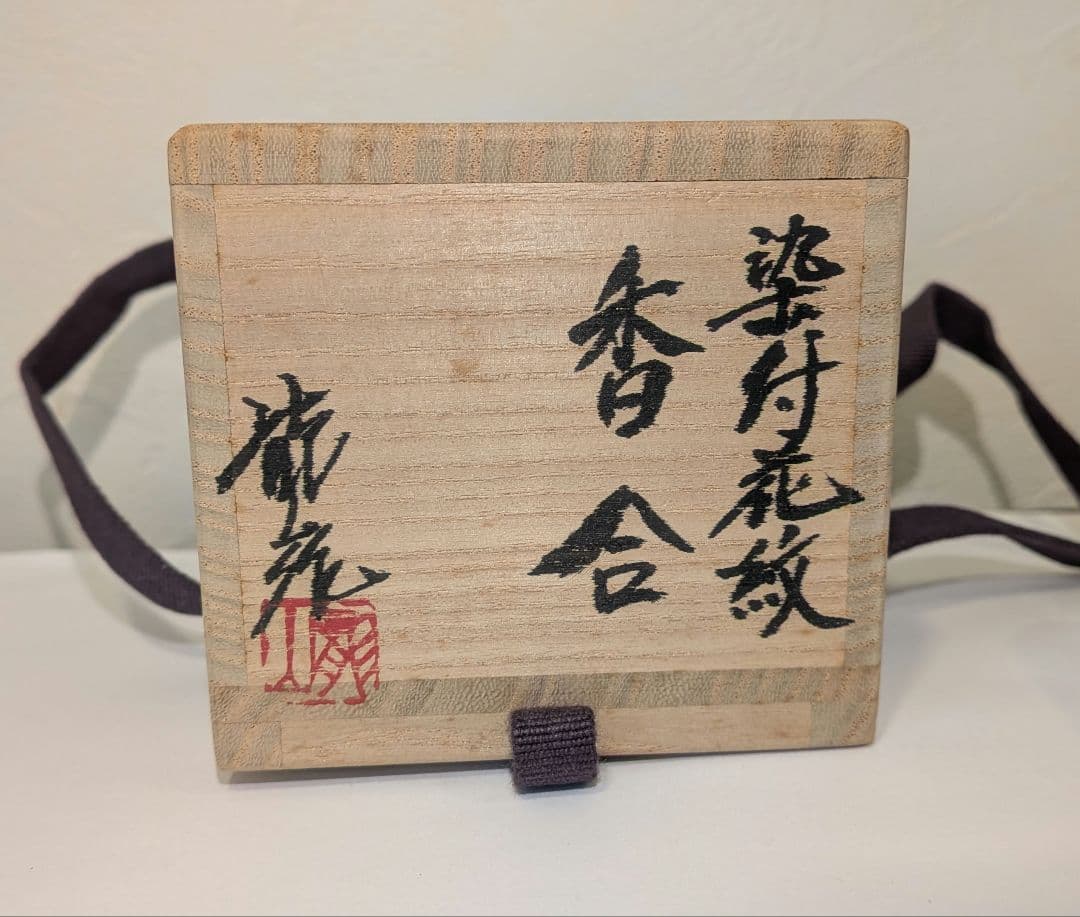 染付花紋
香合